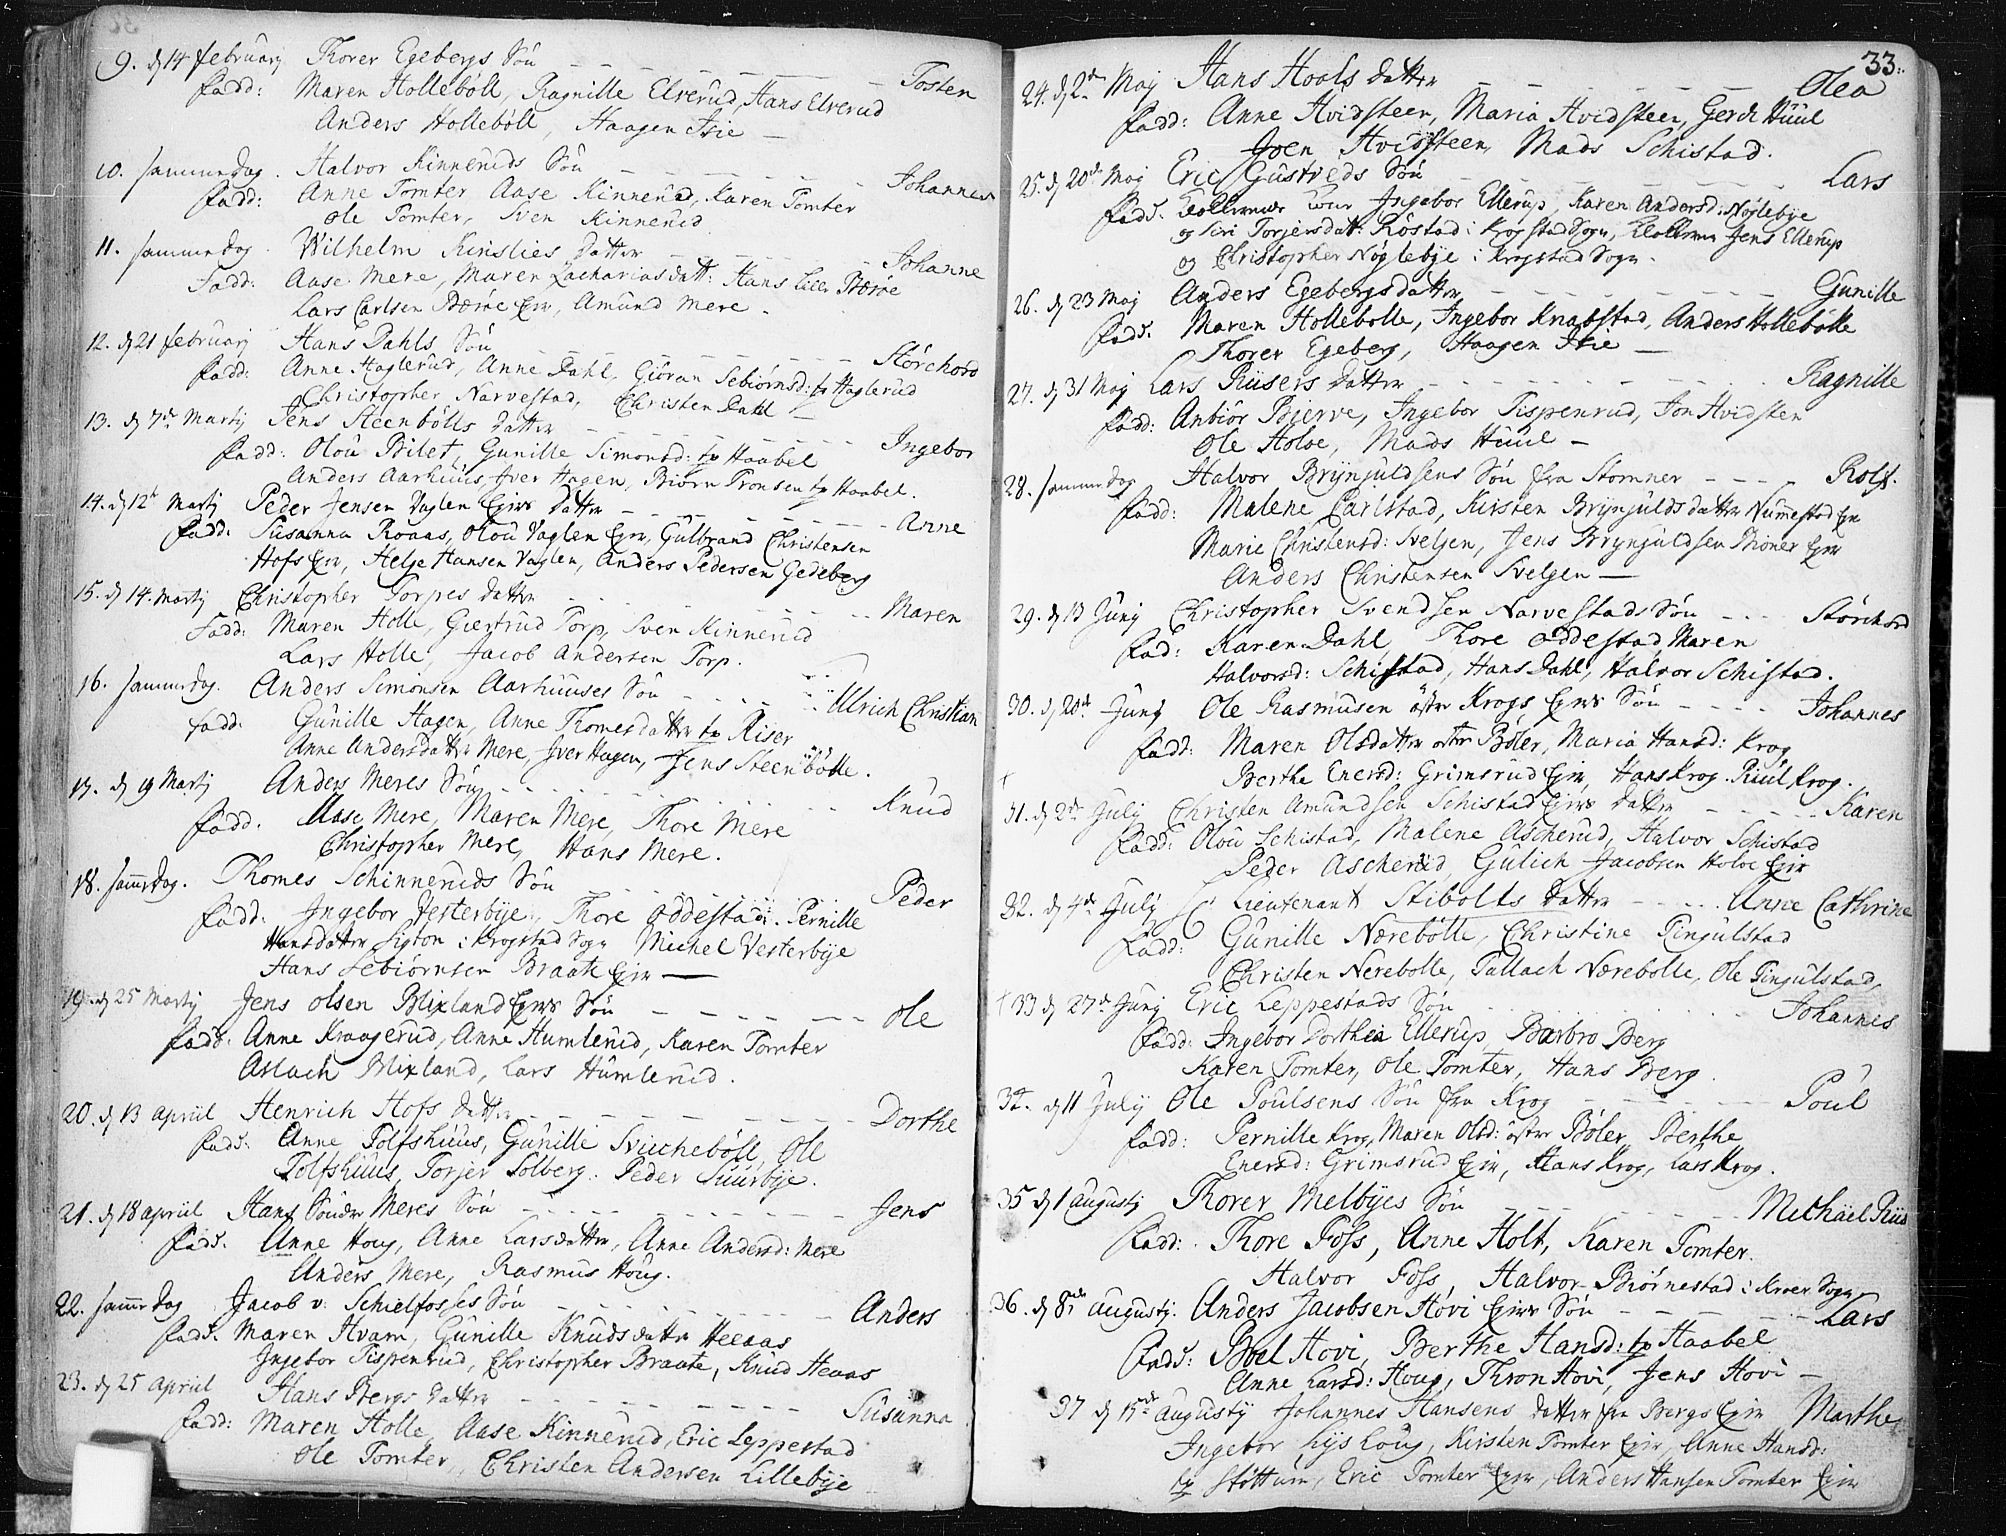 9. d 14 februarij Thorer Egebergs Søn - - - Tosten
fadd: Maren Holleböll, Ragnille Elverud, Hans Elverud
Anders Holleböll, Haagen Isie
10. sammedag. Halvor Kinneruds Søn - - - Johannes
fadd: Anne Tomter Aase Kinnerud, Karen Tomter
Ole Tomter, Sven Kinnerud
11. sammedag. Wilhelm Kinslies datter - - - Johanne
Fadd: Aase Mere, Maren Zachariasdatt: Hans
Lars Carlsen Eier, Amund Mere.
12. d 21 februarij Hans Dahls Søn - - - Storchord
fadd: Anne Haglerud, Anne Dahl, Giöran Sebiörnsd: Haglerud
Christopher Narvestad, Christen Dahl
13. d 7de Martij Jens Steenbölls datter - - - Ingebor
fadd: Olöu Bilet, Gunille Simonsd: Haabel
Anders Aarhuus, Iver Hagen, Biörn Tronsen Haabel.
14. d 12te Martij Peder Jensen Vaglen Eiers datter - - - Anne
fadd: Susanna Roaas, Olöu Vaglen Eier, Gulbrand Christensen
Hofs Eier, Helje Hansen Vaglen, Anders Pedersen Gedeberg
15. d 14. Martij Christopher Torpes datter - - - Maren
Fadd: Maren Holle, Giertrud Torp, Sven Kinnerud
Lars Holle, Jacob Andersen Torp.
16. sammedag. Anders Simonsen Aarhuuses Søn - - - Ullrich Christian
fadd: Gunille Hagen, Anne Thomesdatter Riser
Anne Andersdatter Mere, Iver Hagen, Jens Steenbölle.
17. d 19 Martij Anders Meres Søn - - - Knud
fadd. Aase Mere, Maren Mere, Thore Mere
Christopher Mere, Hans Mere.
18. sammedag. Thomes Schinneruds Søn - - - Peder
fadd. Ingebor Vesterbÿe, Thore Oddestad. Pernille
Hansdatter Sigton i Krogstad Sogn Michel Vesterbÿe
Hans Sebiörnsen Braate Eier
19. d 25 Martij Jens Olsen Blixland Eiers Søn - - - Ole
fadd: Anne Kraagerud, Anne Humlerud, Karen Tomter
Aslach Blixland, Lars Humlerud.
20. d 13 Apriil Henrich Hofs datter - - - Dorthe
fadd: Anne Tolfshuus, Gunille Svinchebøll, Ole
Tolfshuus, Torjer Solberg. Peder Suurbÿe.
21. d 18 apriil Hans Söndre Meres Søn - - - Jens
fadd. Anne Houg, Anne Larsdatter, Anne Andersd: Mere
Anders Mere, Rasmus Houg.
22. samme dag Jacob v: Schielfosses Søn - - - Anders
fadd. Maren Hvam, Gunille Knudsdatter Heeaas
Ingebor Tispenrud, Christopher Braate, Knud Heaas
23. d 25 Apriil Hans Bergs datter - - - Susanna
fadd: Maren Holle, Aase Kinnerud, Eric Leppestad
Ole Tomter, Christen Andersen Lillebÿe
33.
24. d 2de Maj Hans Hoals datter - - - Olea
fadd: Anne Hvidsteen, Maria Hvidsteen, Gerdt Huul
Joen Hvidsteen, Mads Schistad.
25. d 20de Maj Eric Gustveds Søn - - - Lars
fadd. Ingebor Ellerup, Karen Andersd: Nøglebÿe
og Siri Torjersdatt: Röstad i Krogstad Sogn, Jens Ellerup
og Christopher Nøglebÿe i Krogstad Sogn.
26. d 23 Maj Anders Egebergs datter - - - Gunille
fadd. Maren Hollebolle, Ingebor Knabstad, Anders Hollebölle
Thorer Egeberg, Haagen Isie
27. d 31 Maj Lars Riisers datter - - - Ragnille
fadd: Anbiör Bierve, Ingebor Tispenrud, Jon Hvidsten
Ole Holve, Mads Huul
28. samme dag Halvor Brÿnjuldsens Søn fra Stomner - - - Rolf.
fadd: Malene Carlstad, Kirsten Brÿnjulds datter Nummestad Eier
Marie Christensd: Svelgen, Jens Brÿnjuldsen Eier
Anders Christensen Svelgen
29. d 13 Junij Christopher Svendsen Narvestads Søn - - - Störchord
fadd: Karen Dahl, Thore Oddestad, Maren
Halvorsd: Schistad, Hans Dahl, Halvor Schistad.
30. d 20de Junij Ole Rasmusen östre Krogs Eiers Søn - - - Johannes
fadd: Maren Olsdatter östre Böler, Maria Hansd: Krog
Berthe Enersd: Grimsrud Eier, Hans Krog. Poul Krog.
31. d 2de Julij Christen Amundsen Schistad Eiers datter - - - Karen
fadd: Olöu Schistad, Malene Ascherud, Halvor Schistad
Peder Ascherud, Gulich Jacobsen Holve Eier
32. d 4de Julij Lieutenant Stibolts datter - - - Anne Cathrine
fadd: Gunille Nærebölle, Christine Ringulstad
Christen Nerebolle, Tallach Nærebolle, Ole Ringulstad,
† 33 d 27de Junij Eric Leppestads Søn - - - Johannes
fadd: Ingebor Dorthea Ellerup, Barbro Berg
Karen Tomter, Ole Tomter, Hans Berg.
34. d 11 Julij Ole Poulsens Søn fra Krog - - - Poul
fadd: Pernille Krog, Maren Olsd: östre Böler, Berthe
Enersd: Grimsrud Eier, Hans Krog, Lars Krog.
35 d 1 augustj Thorer Melbÿes Søn - - - Michael Riis
fadd: Thore Foss, Anne Holt, Karen Tomter.
Halvor Foss, Halvor Biörnestad i Kroer Sogn
36. d 8de augustj. Anders Jacobsen Hövi Eiers Søn - - - Lars
fadd: Boel Hovi, Berthe Hansd: Haabel
Anne Larsd: Houg, Thron Hovi, Jens Hovi
37 d 15de augustj Johannes Hansens datter fra Bergs Eier Marthe
Ingebor Lÿsloug, Kirsten Tomter Eier, Anne Hansd:
Støttum, Eric Tomter Eier, Anders Hansen Tomter Eier